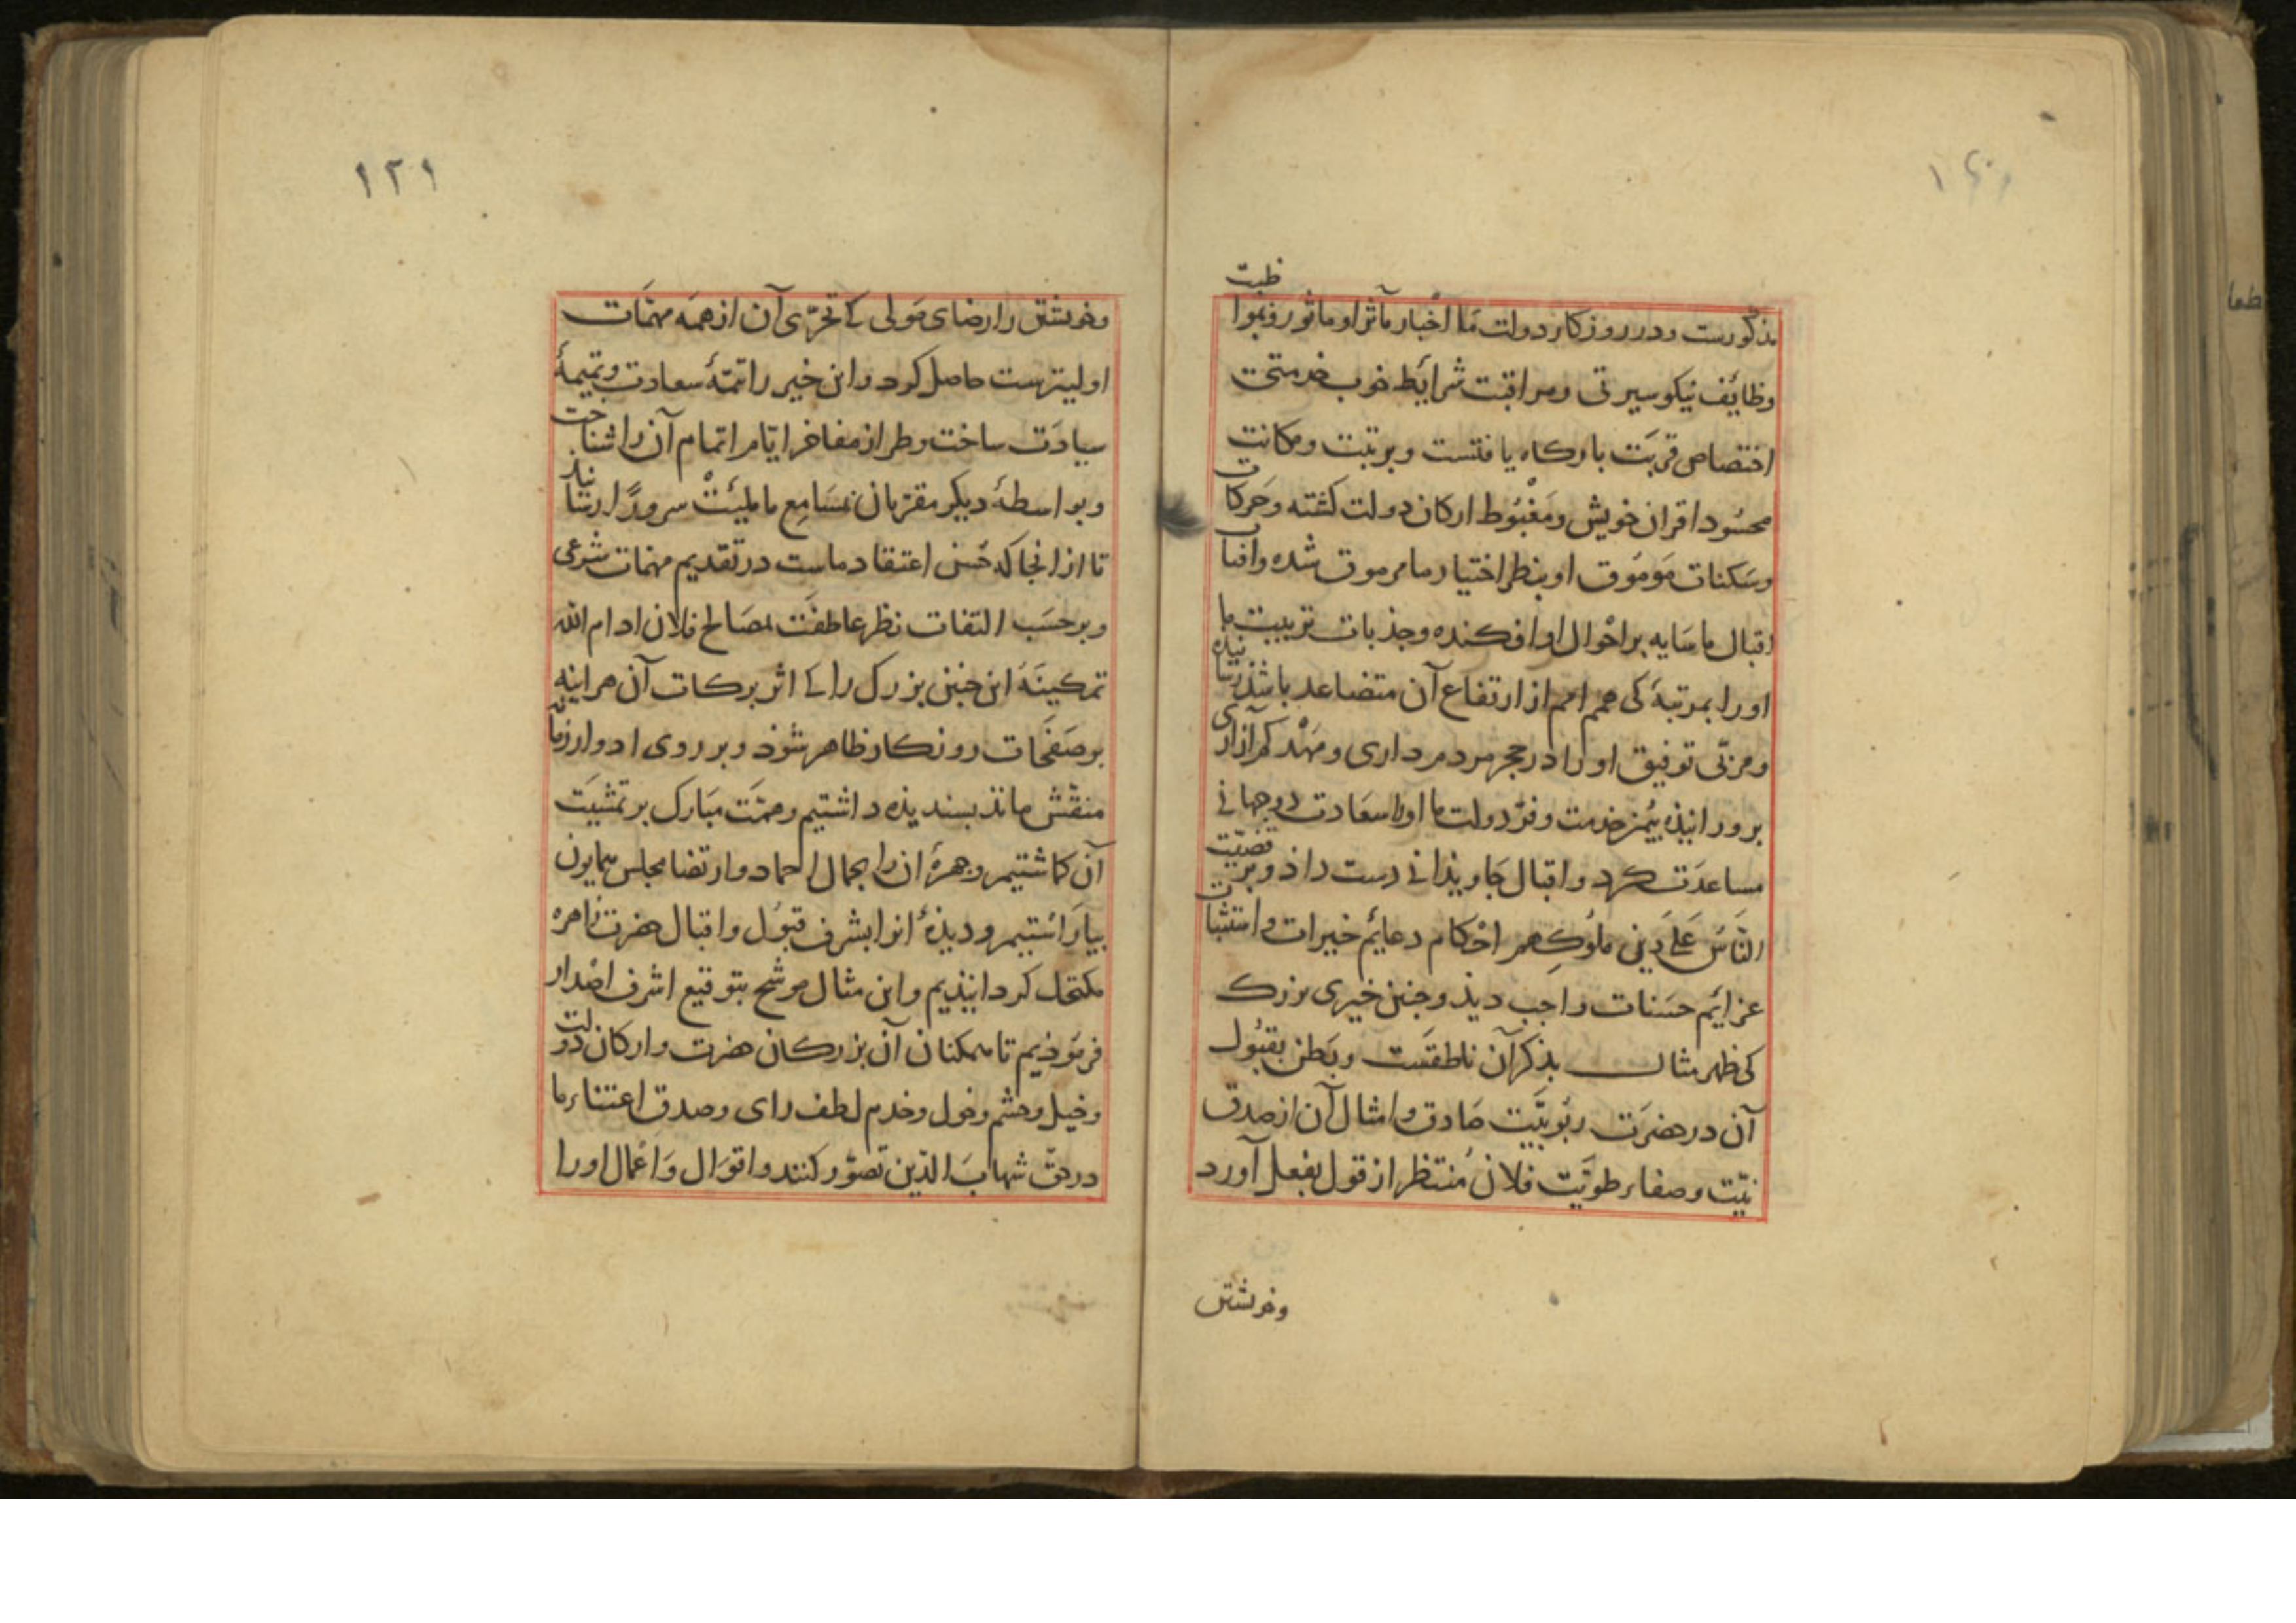 مذکورست ودر روزکار دولت ما اخبار مآثر او ماثور وبموا
ظبت
وظایف نیکو سیرتی ومراقبت شرایط خوب خدمتی
اختصاص قربت بارکاه یافتست وبرتبت ومکانت
محسود اقران خویش ومغبوط ارکان دولت کشته وحرکا
ت
وسکنات موموق او بنظر اختیار ما مرموق شده وافتا
ب
اقبال ما سایه بر احوال او افکنده وجذبات تربیت ما
او را بمرتبۀ کی همم امم از ارتفاع آن متضاعد باشد رسا
نیده
ومربّی توفیق او را در حجر مردم داری ومهد کم آزاری
برورانیذه بیمن خدمت وفرّ دولت ما او را سعادت دوجهانی
مساعدت کرد واقبال جاویذانی دست داذ وبر
قضیّت
الناس علی دین ملوکهم احکام دعایم خیرات واستثبا
ت
عزایم حسنات واجب دید وجنین خیری بزرک
کی ظهر مثال بذکر آن ناطقست وبطن بقبول
آن در حضرت ربوبیّت صادق وامثال آن از صدق
نیّت وصفاء طویّت فلان منتظر از قول بفعل آورد
وخویشتن
١٢١
وخویشتن را رضای مولی کی تحرّی آن از همه مهمّات
اولیترست حاصل کرد واین خیر را تتمّۀ سعادت وتمیمۀ
سیادت ساخت وطراز مفاخر ایّام اتمام آن را شنا
خت
وبواسطۀ دیکر مقرّبان بمسامع ما ملیت سرورًا رسا
نید
تا از انجا که حسن اعتقاد ماست در تقدیم مهمات شرعی
وبرحسب التفات نظر عاطفت بمصالح فلان ادام الله
تمکینه این جنین بزرک را کی اثر برکات آن هراینه
بر صفحات روزکار ظاهر شوذ وبر روی ادوار زما
ن
منقّش ماند بسندیذه داشتیم وهمّت مبارک بر تمشیت
آن کماشتیم وجهرۀ ان را بجمال احماد وارتضا مجلس همایون
بیاراستیم ودیذۀ انرا بشرف قبول واقبال حضرت زاهره
مکتحل کردانیذیم واین مثال موشح بتوقیع اشرف اصدار
فرموذیم تا همکنان آن بزرکان حضرت وارکان دو
لت
وخیل وحشم وخول وخدم لطف رای وصدق اعتناء ما
در حقّ شهاب الدّین تصوّر کنند واقوال واعمال او را